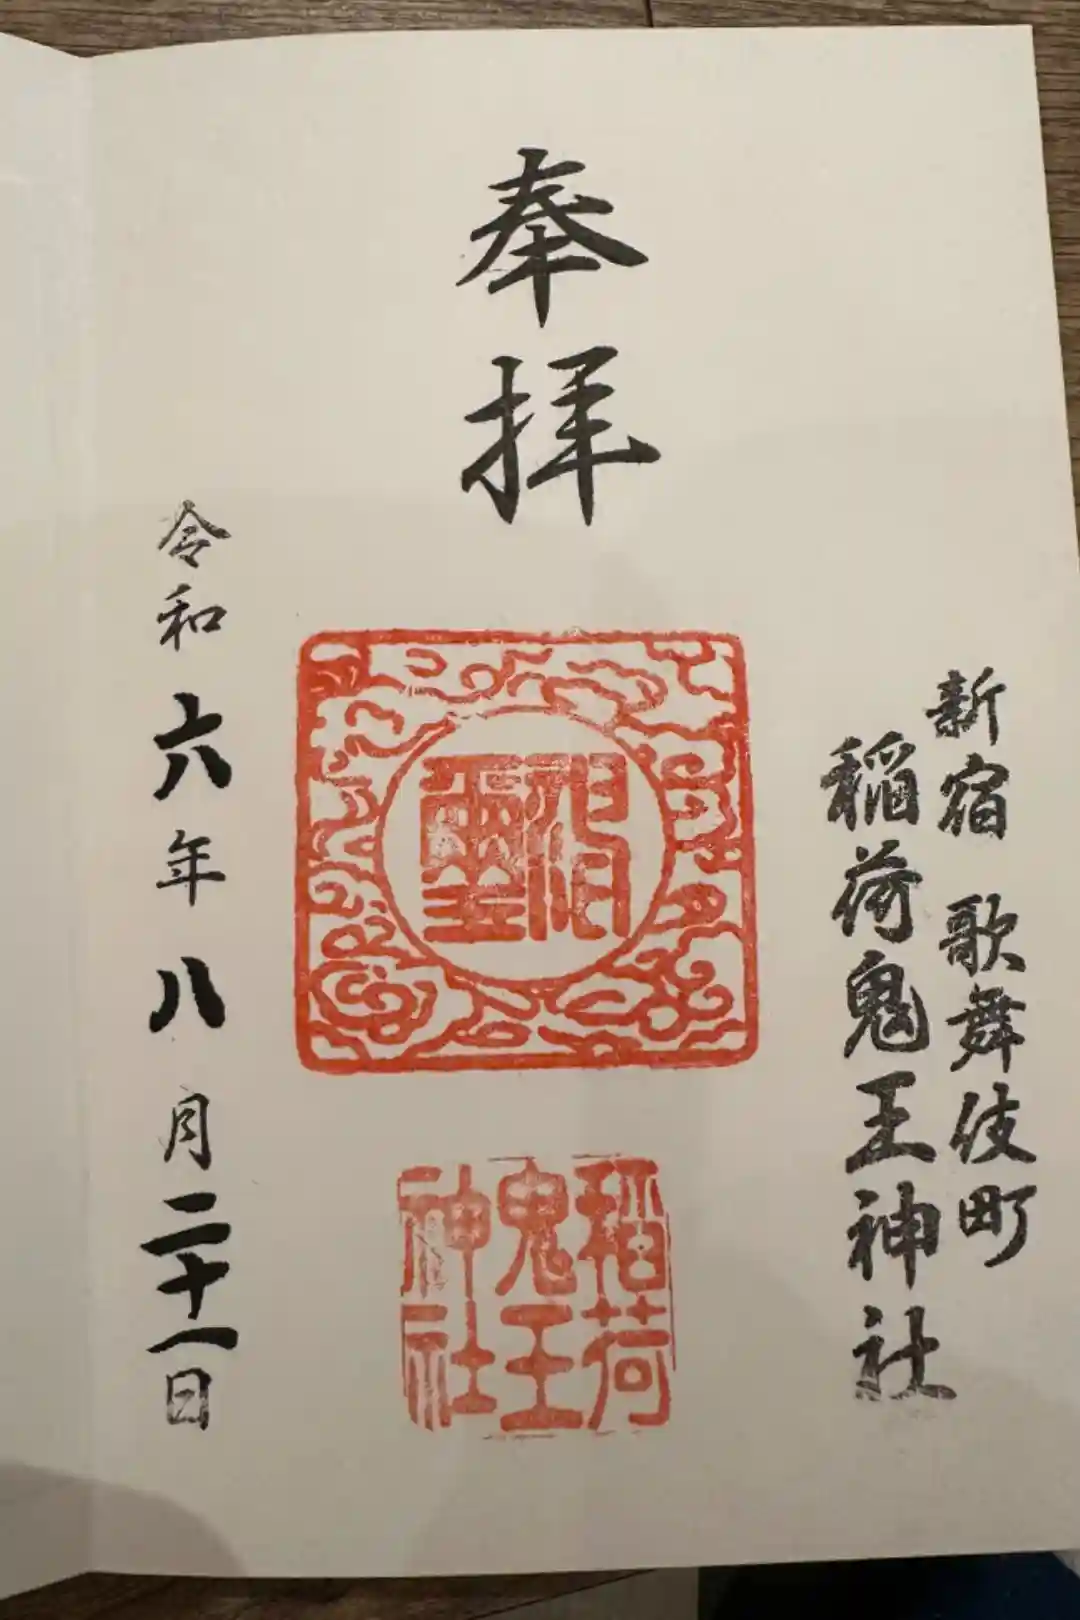 新宿 歌舞伎町
稲荷鬼王神社
奉拝
稲荷
鬼王
神社
令和六年八月二十一日